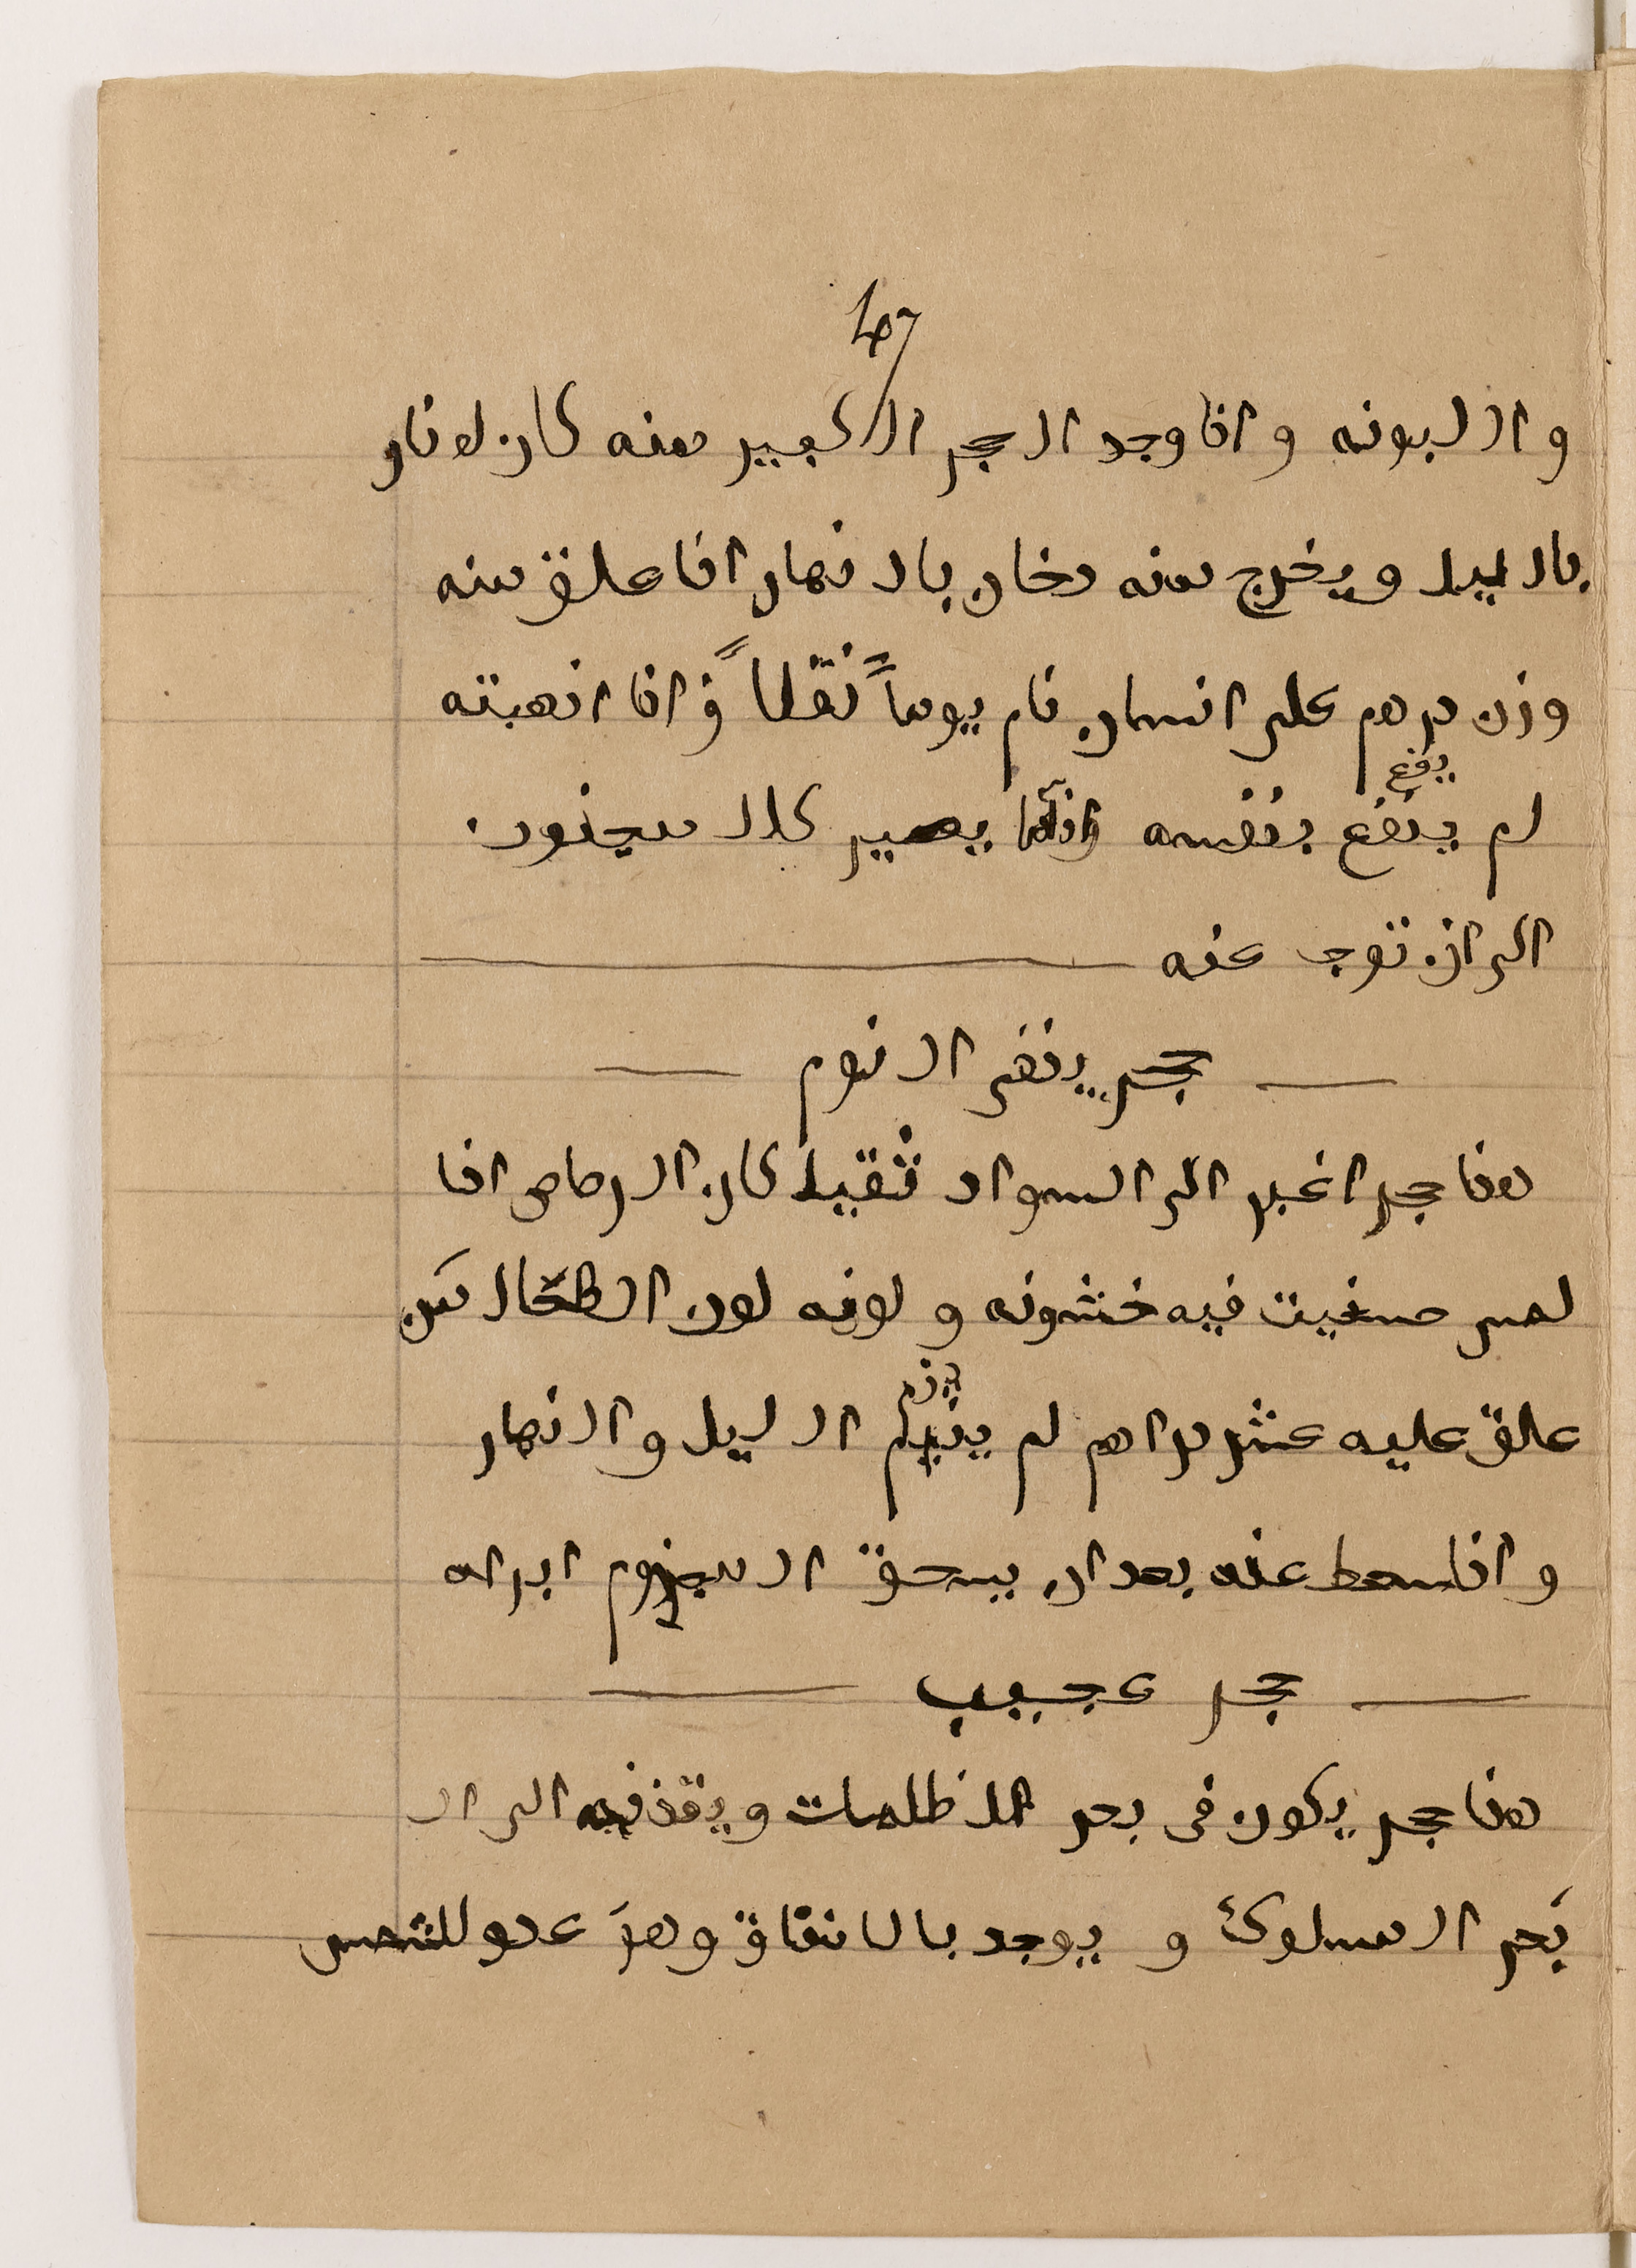 47
و اللبونه و اذا وجد الحجر الكبير منه كان له نار
بالليل ويخرج منه دخان بالنهار اذا علق منه
وزن درهم على انسان نام يوماً ثقلاً و اذا انهبته
يفع
لم ينفع بنفسه وانما يصير كالمجنون
الى ان نوجه عنه
حجر ينفى النوم
هذا حجر اغبر الى السواد ثقيل كان الرصاص اذا
لمس صغيت فيه خشونه و لونه لون الطحال من
علق عليه عشر دراهم لم ينم الليل و النهار
و اذا سعط عنه بعد ان يسحق المجزوم ابراه
حجر عجيب
هذا حجر يكون فى بحر الظلمات و يقذفه الى ال
بحر المسلوك و يوجد بالانفاق وهو عدو للشمس